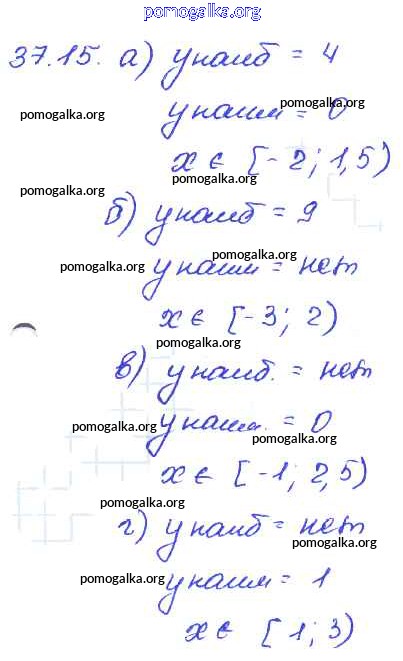 pomogalka.org
37.15. а) унаиб = 4
pomogalka.org
pomogalka.org
унаим = 0
x ∈ [-2; 1,5)
pomogalka.org
pomogalka.org
б) унаиб = 9
pomogalka.org
pomogalka.org
унаим = нет
x ∈ [-3; 2)
pomogalka.org
в) унаиб. = нет
pomogalka.org
унаим. = 0
pomogalka.org
x ∈ [-1; 2,5)
pomogalka.org
г) унаиб = нет
pomogalka.org
pomogalka.org
унаим = 1
x ∈ [1; 3)